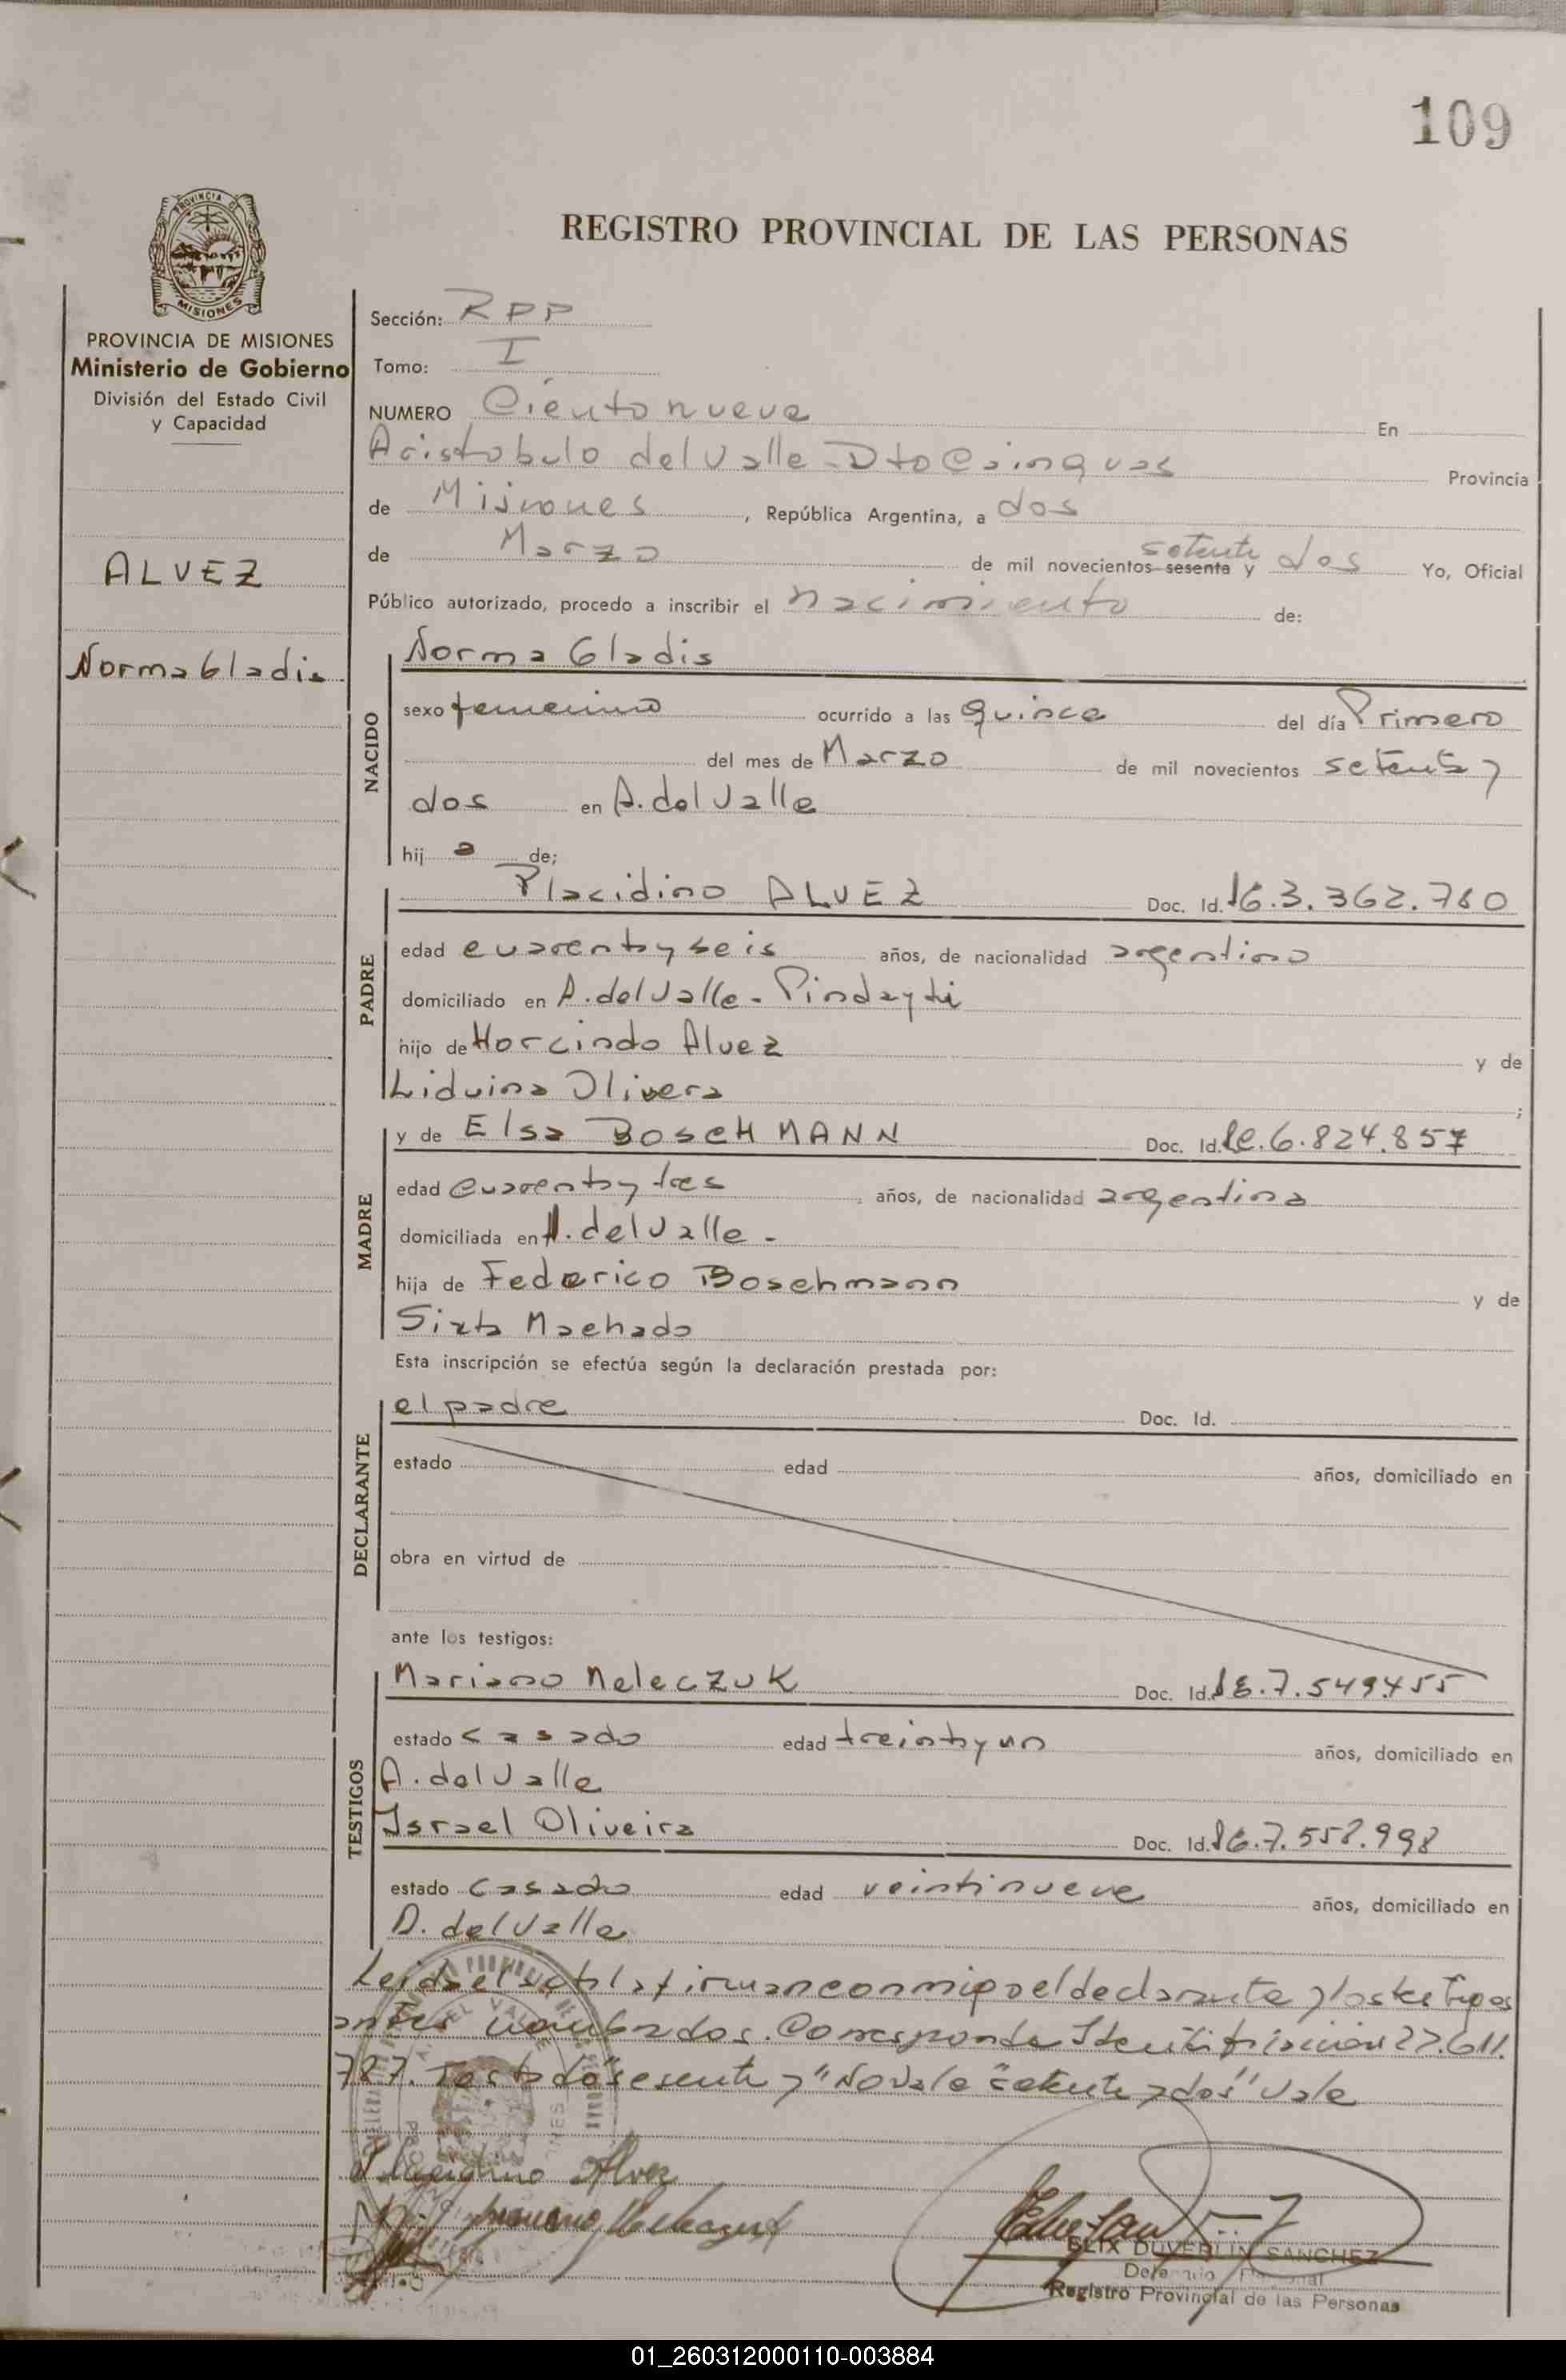 109
REGISTRO PROVINCIAL DE LAS PERSONAS
PROVINCIA DE MISIONES
Ministerio de Gobierno
División del Estado Civil
y Capacidad
ALVEZ
Norma Gladis
Sección: RPP
Tomo: I
NUMERO Ciento nueve En
Aristobulo del Valle - Dto Cainguas Provincia
de Misiones, República Argentina, a dos
de Marzo de mil novecientos sesenta y setenta dos Yo, Oficial
Público autorizado, procedo a inscribir el nacimiento de:
NACIDO
Norma Gladis
sexo femenino ocurrido a las quince del día Primero
del mes de Marzo de mil novecientos setenta y
dos en A. del Valle
hij a de;
PADRE
Placidino ALVEZ Doc. Id. 3.362.780
edad cuarenta y seis años, de nacionalidad argentino
domiciliado en A. del Valle - Pindayti
hijo de Horcindo Alvez y de
Liduina Olivera ;
MADRE
y de Elsa BoscHMANN Doc. Id. 6.824.857
edad cuarenta y tres, años, de nacionalidad argentina
domiciliada en A. del Valle -
hija de Federico Boschmann y de
Sixta Machado
Esta inscripción se efectúa según la declaración prestada por:
DECLARANTE
el padre Doc. Id.
estado edad años, domiciliado en
obra en virtud de
ante los testigos:
TESTIGOS
Mariano Meleczuk Doc. Id. 7.549.455
estado casado edad treinta y un años, domiciliado en
A. del Valle
Israel Oliveira Doc. Id. 7.558.998
estado casado edad veintinueve años, domiciliado en
A. del Valle
Leida el acta la firman conmigo el declarante y los testigos
antes nombrados. Corresponde Identificación 22.611.
787. Testado "sesenta y" No vale "setenta y dos" Vale
Placidino Alvez
ELIX DUVERLIN SANCHEZ
Registro Provincial de las Personas
01_260312000110-003884